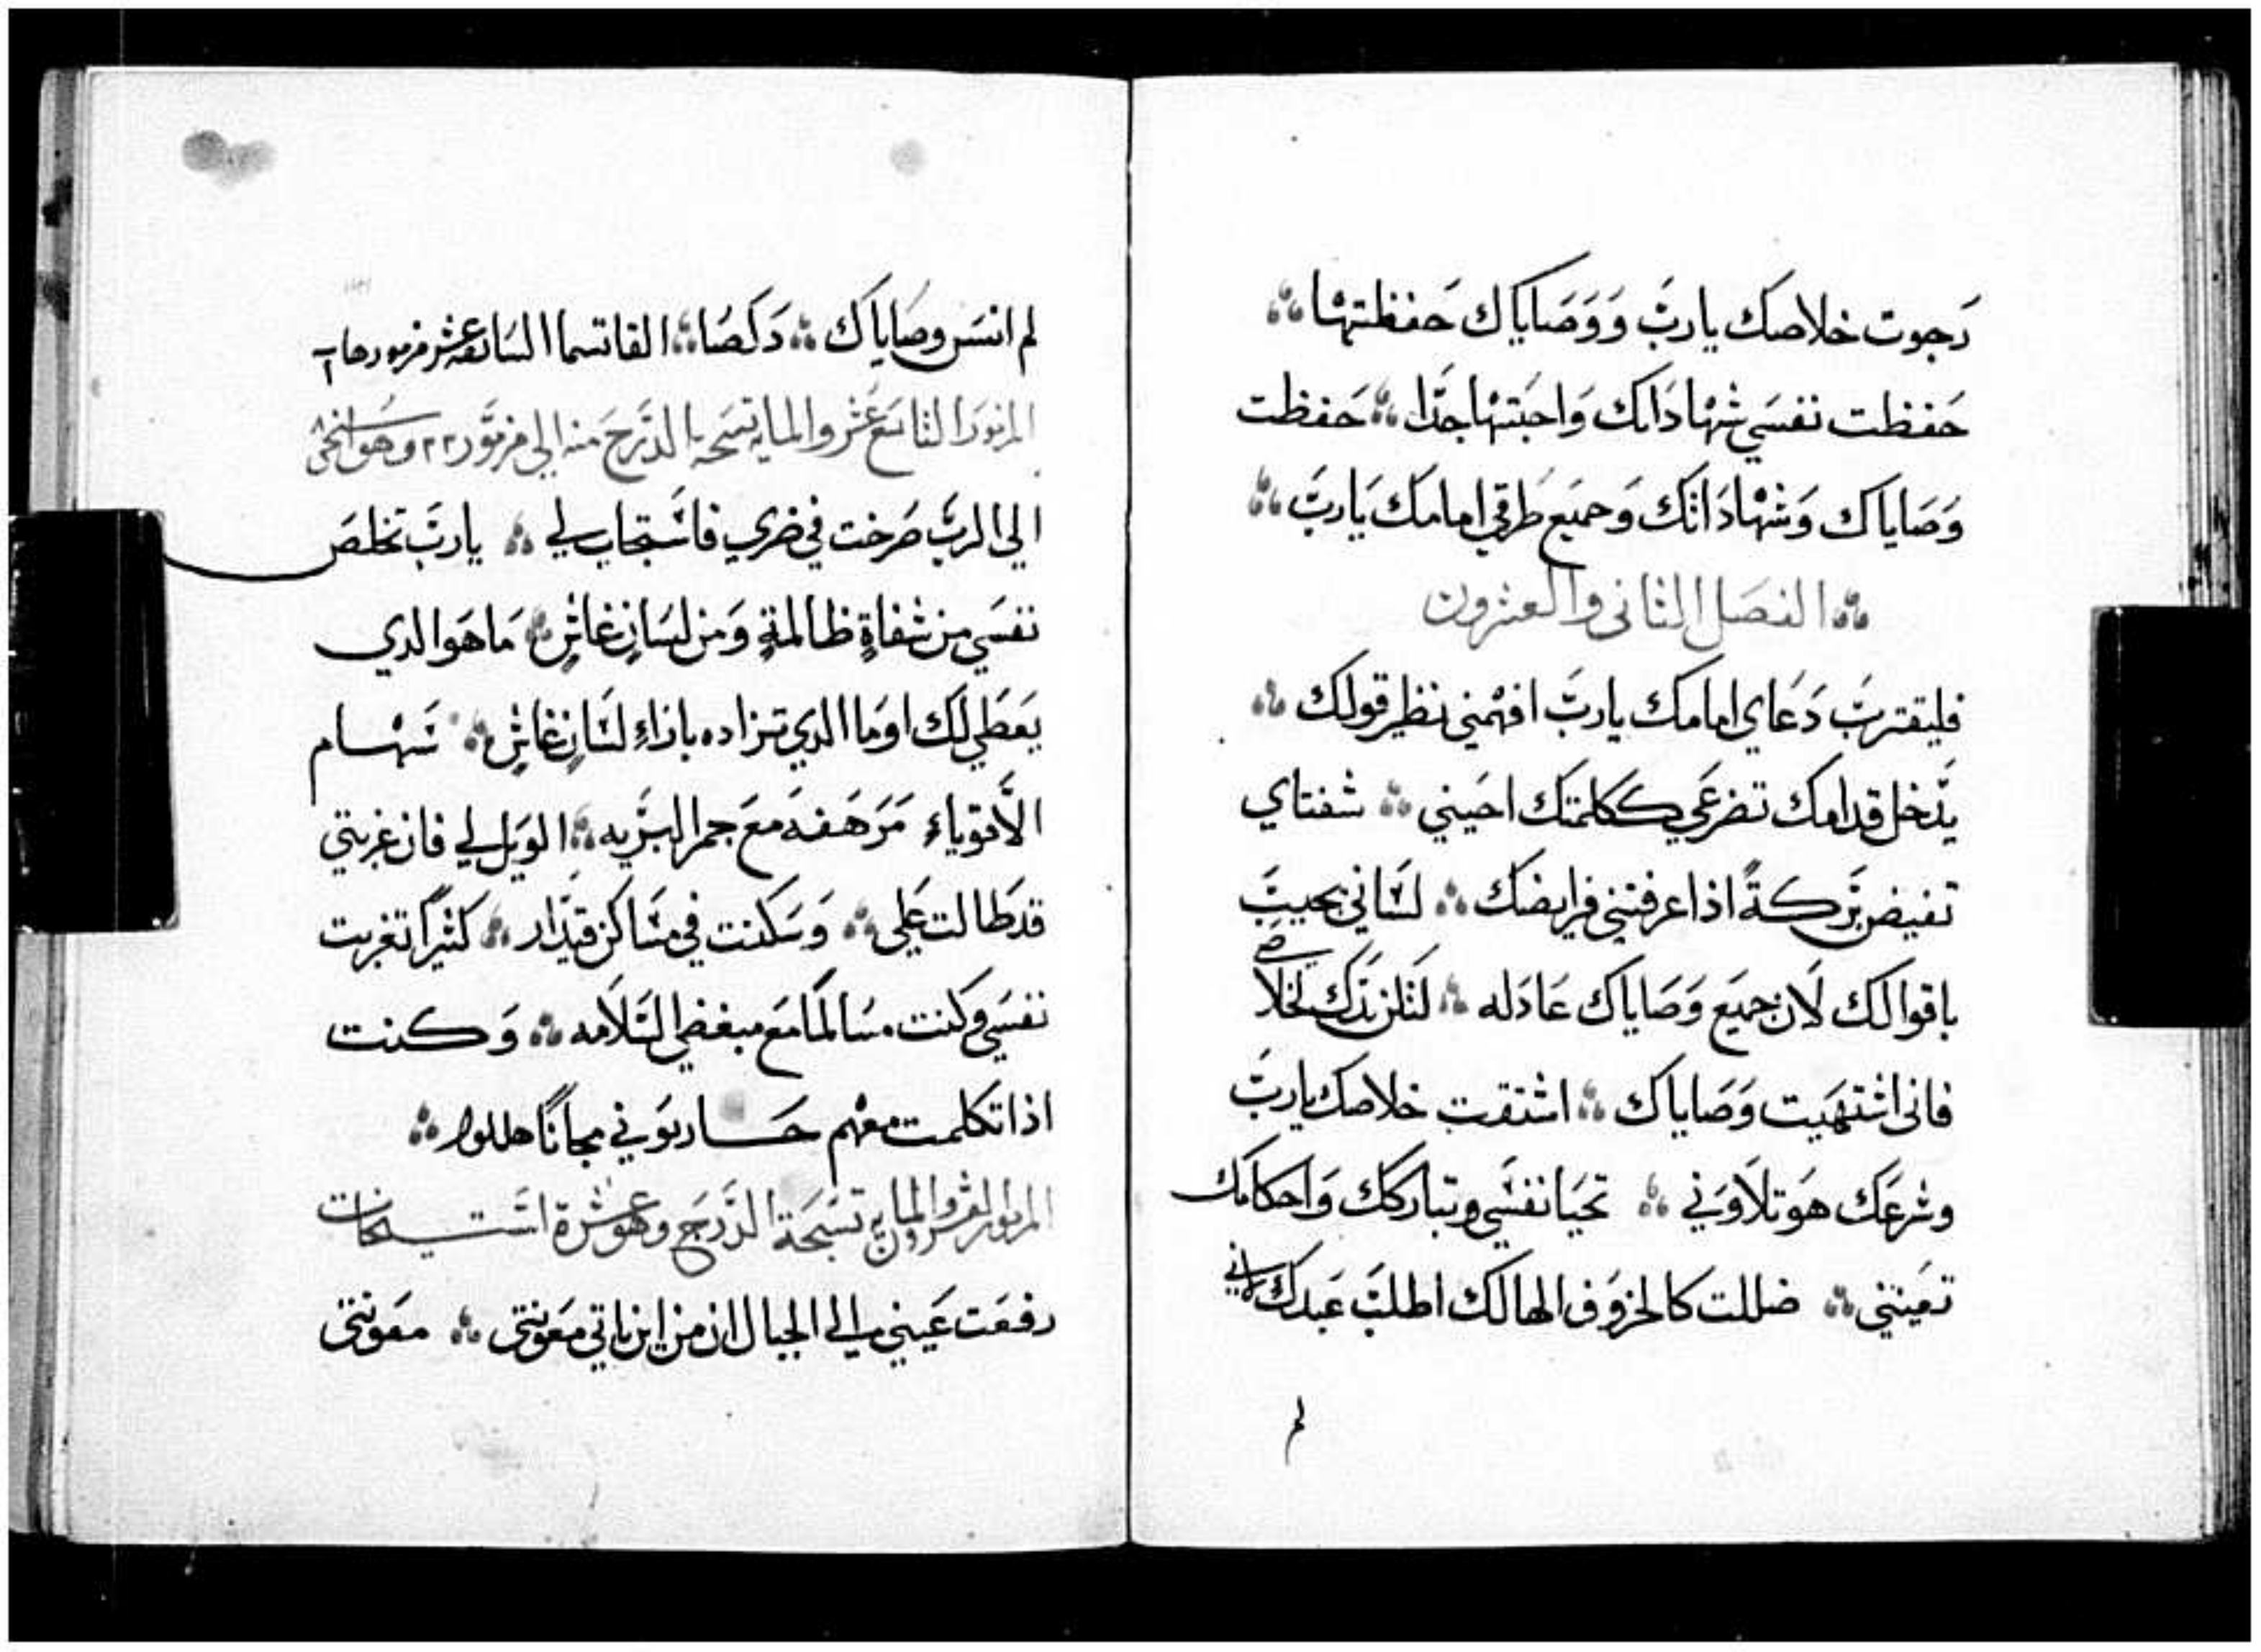 رجوت خلاصك يارب ووصاياك حفظتها
حفظت نفسي شهاداتك واحبتها جدًا حفظت
وصاياك وشهاداتك وجميع طرقي امامك يارب
الفصل الثاني والعشرون
فليقترب دعاي امامك يارب افهمني نظير قولك
يدخل قدامك تضرعي ككلمتك احيني شفتاي
تفيض بركةً اذا عرفتني فرايضك لساني يجيب
باقوالك لان جميع وصاياك عادله لتكن يدك لخلاصي
فاني اشتهيت وصاياك اشتقت خلاصك يارب
وشرعك هو تلاوتي تحيا نفسي وتباركك واحكامك
تعينني ضللت كالخروف الهالك اطلب عبدك فاني
لم
لم انسَ وصاياك دكصا القاتسما السابعه عشر
المزمور التاسع عشر والمايه تسبحه الدرج منه الى مزمور ٢٢ وهو
الى الرب صرخت في ضري فاستجاب لي يارب تخلص
نفسي من شفاةٍ ظالمةٍ ومن لسانٍ غاشٍ ما هو الدي
يعطي لك او ما الدي تزاده باذاءِ لسانٍ غاشٍ سهام
الاقوياء مرهفه مع جمر البريه الويل لي فان غربتي
قد طالت علي وسكنت في مساكن قيدار كثيرًا تغربت
نفسي وكنت مسالمًا مع مبغضي السلامه وكنت
اذا تكلمت معهم حاربوني مجانًا هللوا
المزمور العشرون والمايه تسبحة الدرج وهو عشرة استيخنات
رفعت عيني الى الجبال ان من اين ياتي معونتي معونتي